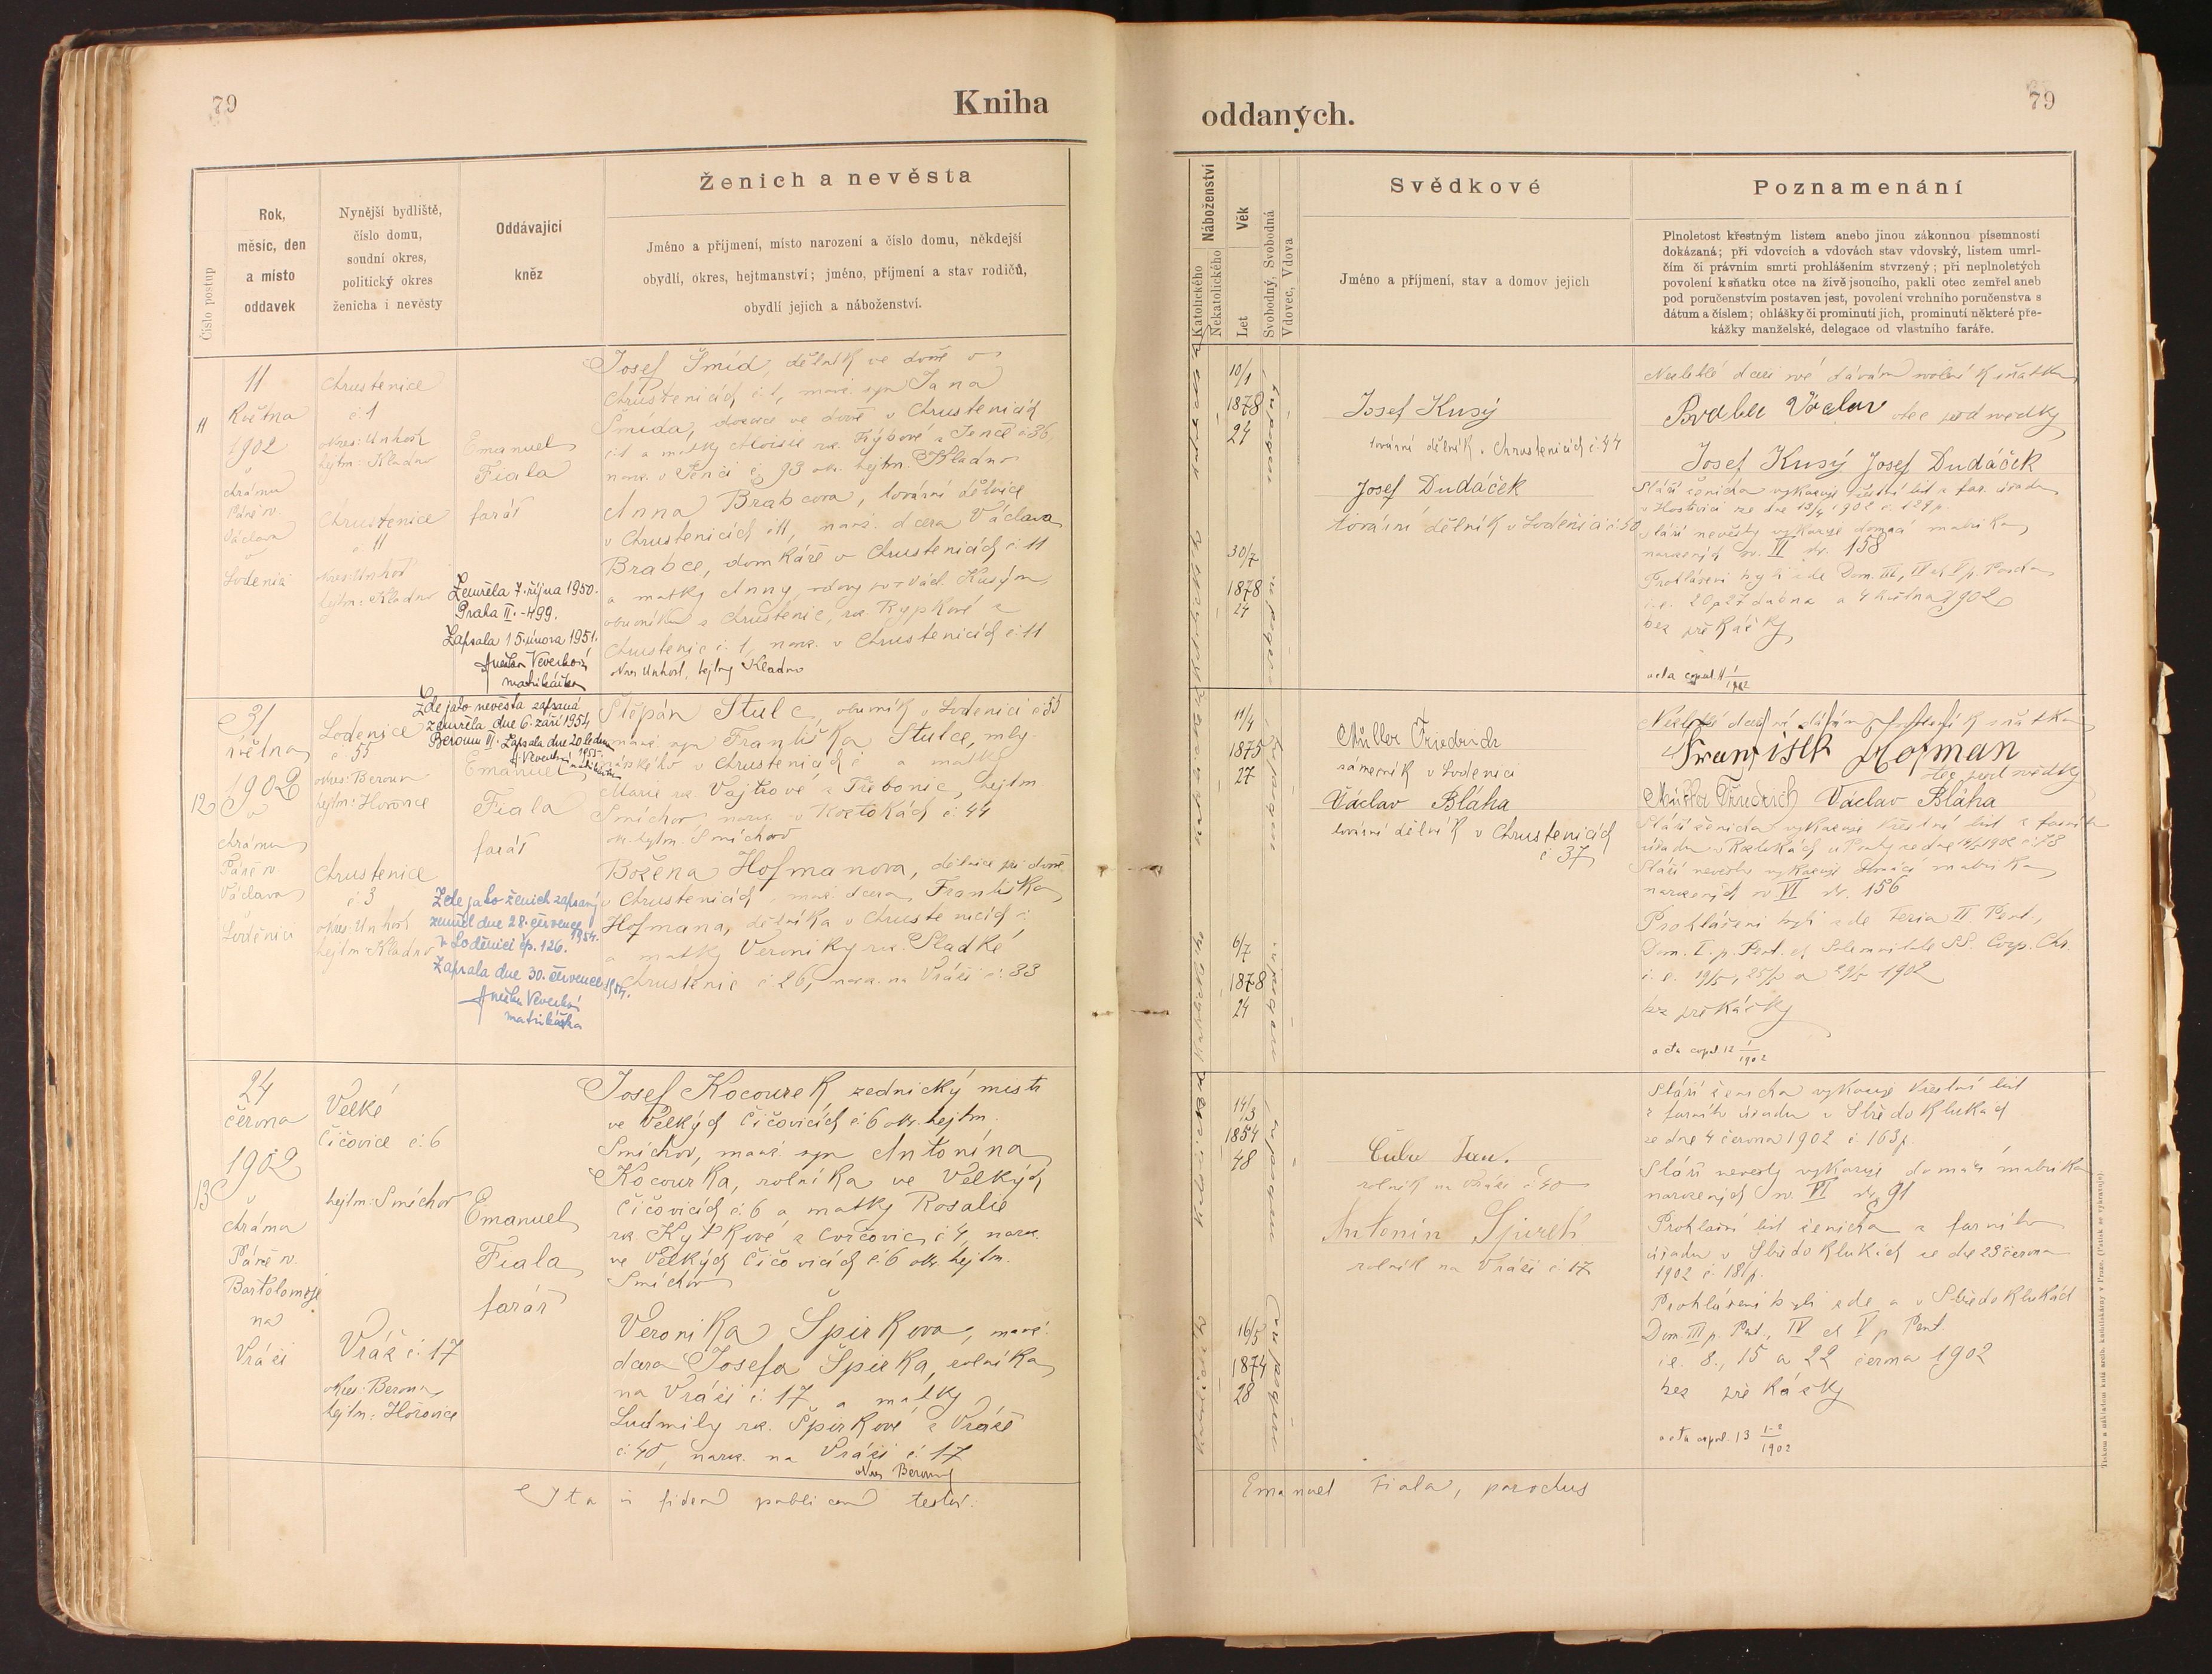 79
Kniha
Číslo postup
Rok,
měsíc, den
a místo
oddavek
Nynější bydliště,
číslo domu,
soudní okres,
politický okres
ženicha i nevěsty
Oddávající
kněz
Ženich a nevěsta
Jméno a příjmení, místo narození a číslo domu, někdejší
obydlí, okres, hejtmanství; jméno, příjmení a stav rodičů,
obydlí jejich a náboženství.
11
11
Května
1902
v
chrámu
Páně sv.
Václava
v
Lodenici
Chrustenice
č: 1
okres: Unhošť
hejtm: Kladno
Chrustenice
č: 11
okres: Unhošť
hejtm: Kladno
Emanuel
Fiala
farář
Zemřela 7. října 1950.
Praha II.-499.
Zapsala 15. února 1951.
matrikářka
Josef Šmíd, dělník ve dvoře v
Chrustenicích č: 1, manž. syn Jana
Šmída, ve dvoře v Chrustenicích
č: 1 a matky Aloisie roz. z Jenče č 36,
naroz. v Jenči č 93 okr. hejtm. Kladno
Anna Brabcova, tovární dělnice
v Chrustenicích č 11, manž. dcera Václava
Brabce, domkáře v Chrustenicích č: 11
a matky Anny, vdovy po Václ. Kusým,
z Chrustenic, roz. Rypkové z
Chrustenic č. 1, naroz. v Chrustenicích č: 11
okres Unhošť, hejtm Kladno
12
31
května
1902
v
chrámu
Páně sv.
Václava
v
Loděnici
Lodenice
č 55
okres: Beroun
hejtm: Hořovice
Chrustenice
č: 3
okres: Unhošť
hejtm: Kladno
Zde jako nevěsta zapsaná
zemřela dne 6. září 1954
Beroun II. Zapsala dne 20 ledna
1955.
Emanuel
Fiala
farář
Zde jako ženich zapsaný
zemřel dne 28. července
1954.
v Loděnici čp. 126.
Zapsala dne 30. července 1954.
matrikářka
Štěpán Stulc, obuvník v Lodenici č 55
manž. syn Františka Stulce, mly-
nářského v Chrustenicích č a matky
Marie roz. Vajtrové z Třebonic, hejtm.
Smíchov naroz. v Roztokách č: 44
ok. hejtm. Smíchov
Božena Hofmanova, dělnice při dvoře
v Chrustenicích, manž. dcera Františka
Hofmana, dělníka v Chrustenicích č:
a matky Veroniky roz. Sladké
z Chrustenic č 26, naroz. na Vráži č: 33
13
24
června
1902
v
chrámu
Páně sv.
Bartoloměje
na
Vráži
Velké
Čičovice č: 6
hejtm: Smíchov
Vráž č: 17
okres: Beroun
hejtm: Hořovice
Emanuel
Fiala
farář
Josef Kocourek, zednický mistr
ve Velkých Čičovicích č: 6 okr. hejtm.
Smíchov, manž. syn Antonína
Kocourka, rolníka ve Velkých
Čičovicích č: 6 a matky Rosalie
roz. Kytkové z Cvrčovic č 4, naroz.
ve Velkých Čičovicích č 6 okr. hejtm.
Smíchov
Veronika Špirkova, manž.
dcera Josefa Špirka, rolníka
na Vráži č: 17 a matky
Ludmily roz. Špirkové z Vráže
č: 40, naroz. na Vráži č: 17
okres Beroun
Ita in fidem publicam testor:
oddaných.
79
Náboženství
Katolického
Nekatolického
Věk
Let
Svobodný, Svobodná
Vdovec, Vdova
Svědkové
Jméno a příjmení, stav a domov jejich
Poznamenání
Plnoletost křestným listem anebo jinou zákonnou písemností
dokázaná; při vdovcích a vdovách stav vdovský, listem umrl-
čím či právním smrti prohlášením stvrzený; při neplnoletých
povolení k sňatku otce na živě jsoucího, pakli otec zemřel aneb
pod poručenstvím postaven jest, povolení vrchního poručenstva s
dátum a číslem; ohlášky či prominutí jich, prominutí některé pře-
kážky manželské, delegace od vlastního faráře.
10/1
1878
24
30/7
1878
24
Josef Kusý
tovární dělník v Chrustenicích č: 44
Josef Dudáček
tovární dělník v Lodenici č: 50
Nezletilé dceři své dávám svolení k sňatku
Václav otec pod svědky
Josef Kusý Josef Dudáček
Stáří ženicha vykazuje křestní list z far. úřadu
v Hostivici ze dne 1902 č. 129 p.
Stáří nevěsty vykazuje domácí matrika
narozených sv. VI str. 158
Prohlášeni byli zde Dom. III, IV et V p. Pascha
i. e. 20, 27 dubna a 4 května 1902
bez překážky
acta copul. 11 1/1902
11/4
1875
27
6/7
1878
24
Müller Friedrich
zámečník v Lodenici
Václav Bláha
tovární dělník v Chrustenicích
č 37
Nezletilé dceři své dávám svolení k sňatku
František Hofman
otec pod svědky
Müller Friedrich Václav Bláha
Stáří ženicha vykazuje křestní list z farního
úřadu v Roztokách u Prahy ze dne 1902 č: 78
Stáří nevěsty vykazuje domácí matrika
narozených sv. VI str. 156
Prohlášeni byli zde Feria II Pent.,
Dom. I. p. Pent. et Solemnitate SS. Corp. Chr.
i. e. 19/5, 25/5 a 29/5 1902
bez překážky
acta copul 12 1/1902
14/3
1854
48
16/5
1874
28
Jan.
rolník na Vráži č: 40
Antonín
rolník na Vráži č: 17
Stáří ženicha vykazuje křestní list
z farního úřadu v Středoklukách
ze dne 4 června 1902 č. 163 p.
Stáří nevěsty vykazuje domácí matrika
narozených sv. VI str. 91
Prohlašní list ženicha z farního
úřadu v Středoklukách ze dne 23 června
1902 č. 181 p.
Prohlášeni byli zde a v Středoklukách
Dom. III p. Pent., IV et V p. Pent.
i. e. 8., 15 a 22 června 1902
bez překážky
acta copul. 13 1-2/1902
Emanuel Fiala, parochus